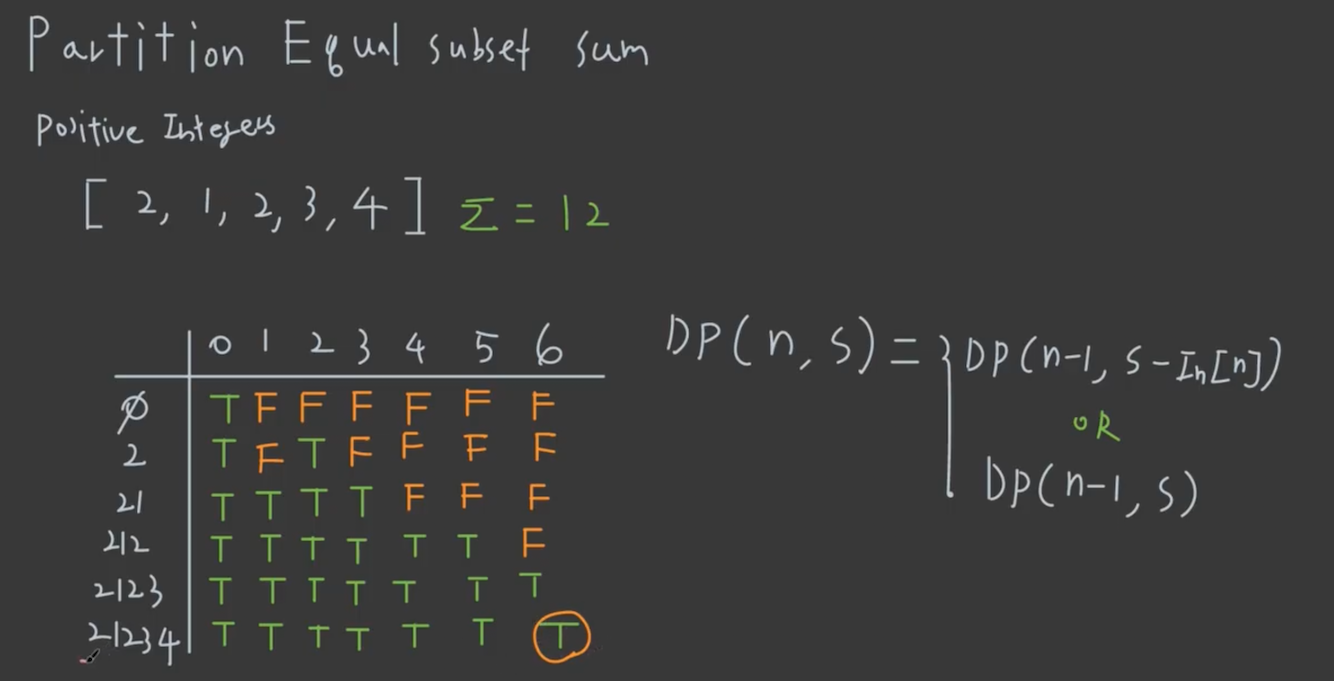 Partition Equal subset sum
Positive Integers
[ 2, 1, 2, 3, 4 ] Σ = 12
0 1 2 3 4 5 6
∅ T F F F F F F
2 T F T F F F F
21 T T T T F F F
212 T T T T T T F
2123 T T T T T T T
21234 T T T T T T T
DP(n, s) = { DP(n-1, s-In[n])
OR
DP(n-1, s)